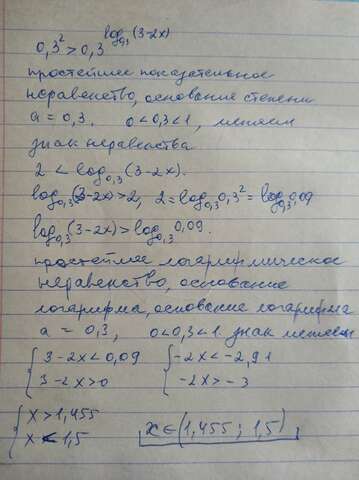 0,3² > 0,3^log₀,₃(3-2x)
простейшее показательное
неравенство, основание степени
a = 0,3. 0<0,3<1, меняем
знак неравенства
2 < log₀,₃(3-2x).
log₀,₃(3-2x)>2, 2 = log₀,₃0,3² = log₀,₃0,09
log₀,₃(3-2x) > log₀,₃0,09.
простейшее логарифмическое
неравенство, основание
логарифма, основание логарифма
a = 0,3, 0<0,3<1. знак меняем
{ 3-2x<0,09 { -2x < -2,91
3-2x>0 -2x > -3
{ x > 1,455
x < 1,5 x ∈ (1,455 ; 1,5)